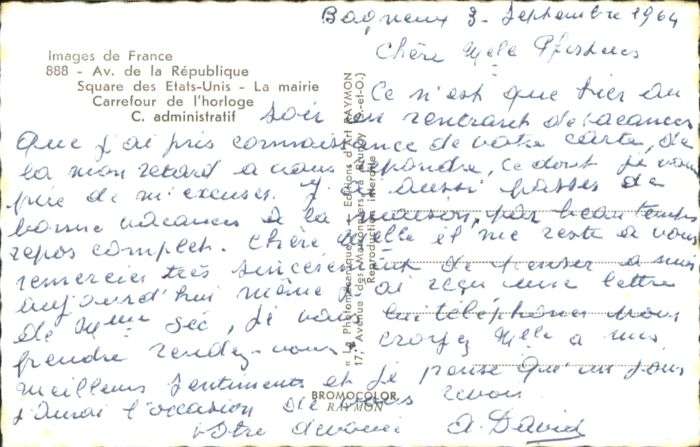 Bagneux 3 Septembre 1964
Images de France
888 - Av. de la République
Square des Etats-Unis - La mairie
Carrefour de l'horloge
C. administratif
Chère Melle
Ce n'est que hier au
soir en rentrant de vacances
que j'ai pris connaissance de votre carte, de
la mon retard a vous répondre, ce dont je vous
prie de m'excuser. J'ai aussi passés de
bonne vacances a la maison, par beau temps
repos complet. Chère Melle il me reste a vous
remercier très sincèrement de penser a moi
aujourd'hui même j'ai reçu une lettre
de Mme Sec, je vous téléphone
prendre rendez-vous. Croyez Melle a mes
meilleurs sentiments et je pense qu'un jour
j'aurai l'occasion de vous revoir
votre dévoué A. David
« La Photomécanique » - Editions d'Art RAYMON
17, Avenue des
Reproduction interdite
BROMOCOLOR
RAYMON